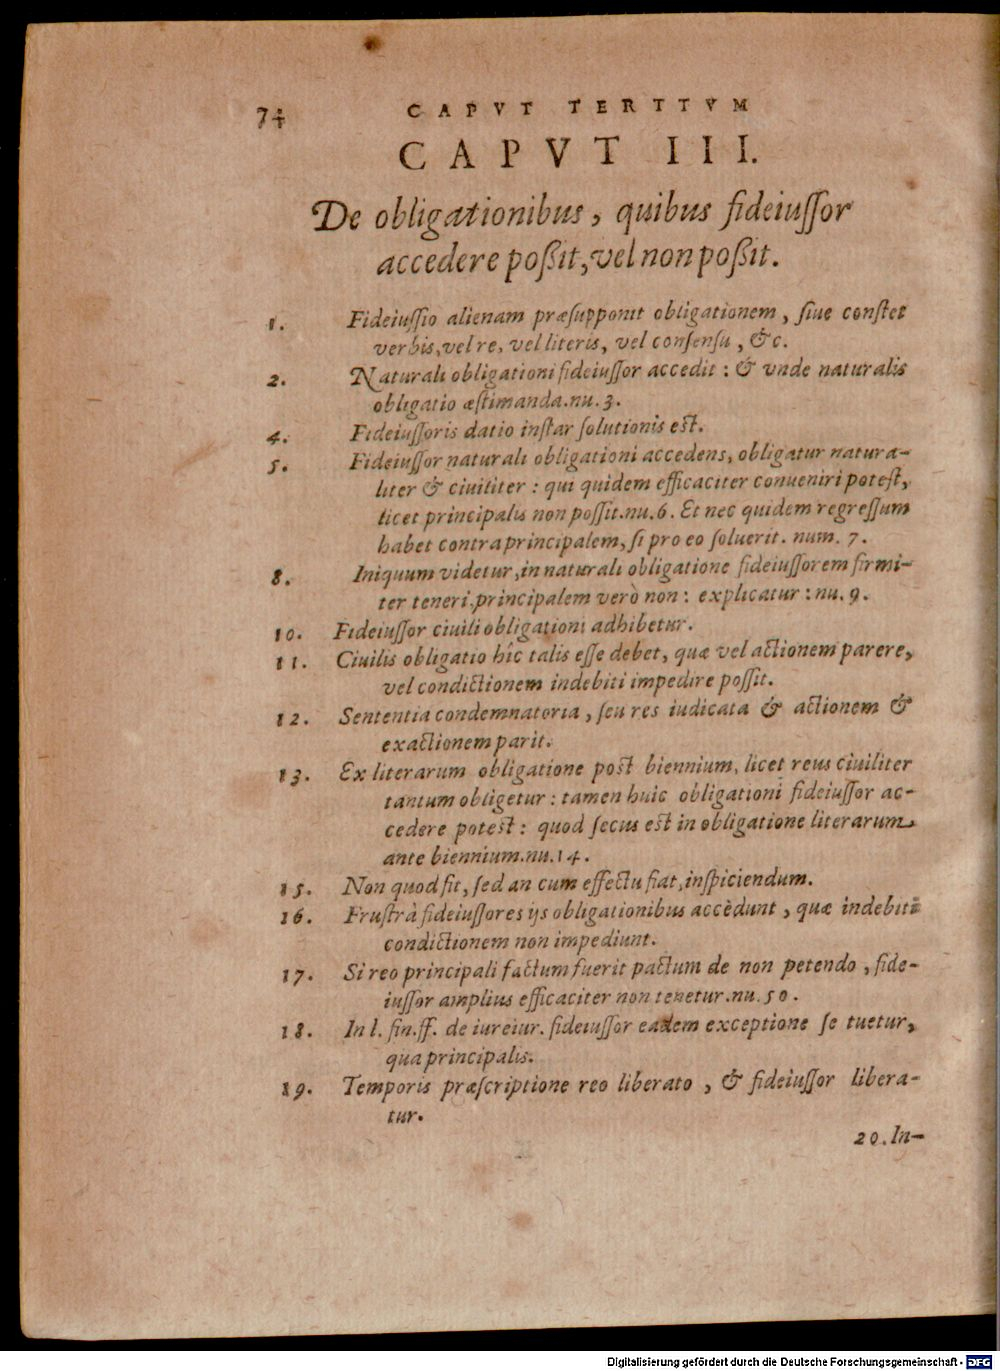 74 CAPVT TERTTVM
CAPVT III.
De obligationibus, quibus fideiuſſor
accedere poßit, vel non poßit.
1. Fideiuſſio alienam præſupponit obligationem, ſiue conſtet
verbis, vel re, vel literis, vel conſenſu, &c.
2. Naturali obligationi fideiuſſor accedit: & vnde naturalis
obligatio æſtimanda. nu. 3.
4. Fideiuſſoris datio inſtar ſolutionis eſt.
5. Fideiuſſor naturali obligationi accedens, obligatur natura-
liter & ciuiliter: qui quidem efficaciter conueniri poteſt,
licet principalis non poſſit. nu. 6. Et nec quidem regreſſum
habet contra principalem, ſi pro eo ſoluerit. num. 7.
8. Iniquum videtur, in naturali obligatione fideiuſſorem firmi-
ter teneri, principalem verò non: explicatur: nu. 9.
10. Fideiuſſor ciuili obligationi adhibetur.
11. Ciuilis obligatio hîc talis eſſe debet, quæ vel actionem parere,
vel condictionem indebiti impedire poſſit.
12. Sententia condemnatoria, ſeu res iudicata & actionem &
exactionem parit.
13. Ex literarum obligatione poſt biennium, licet reus ciuiliter
tantum obligetur: tamen huic obligationi fideiuſſor ac-
cedere poteſt: quod ſecus eſt in obligatione literarum
ante biennium. nu. 14.
15. Non quod fit, ſed an cum effectu fiat, inſpiciendum.
16. Fruſtrà fideiuſſores ijs obligationibus accèdunt, quæ indebiti
condictionem non impediunt.
17. Si reo principali factum fuerit pactum de non petendo, fide-
iuſſor amplius efficaciter non tenetur. nu. 50.
18. In l. fin. ff. de iureiur. fideiuſſor eadem exceptione ſe tuetur,
qua principalis.
19. Temporis præſcriptione reo liberato, & fideiuſſor libera-
tur.
20. In-
Digitalisierung gefördert durch die Deutsche Forschungsgemeinschaft - DFG